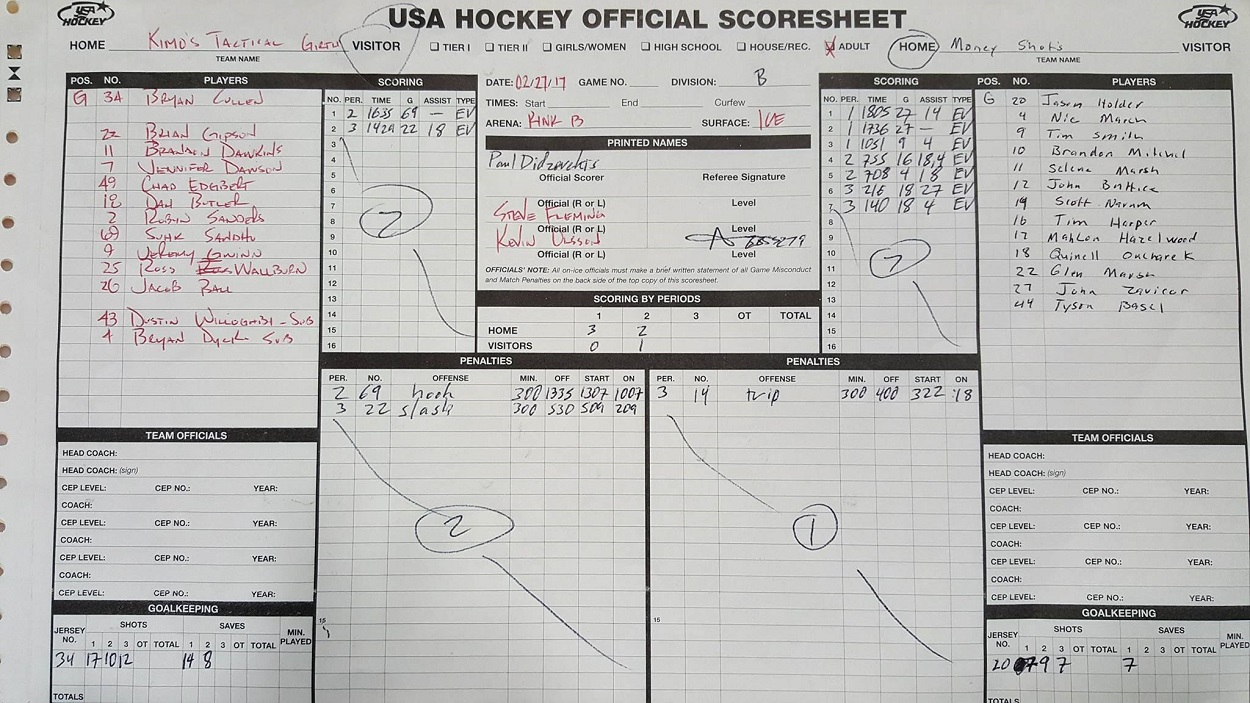 USA HOCKEY
USA HOCKEY OFFICIAL SCORESHEET
USA HOCKEY
HOME Kimo's Tactical VISITOR
TEAM NAME
TIER I TIER II GIRLS/WOMEN HIGH SCHOOL HOUSE/REC. X ADULT
HOME Money Shots VISITOR
TEAM NAME
POS. NO. PLAYERS
G 34 Bryan Cullen
22 Brian Gipson
11 Brandon Dawkins
7 Jennifer Dawson
49 Chad Edgibert
18 Dan Butler
2 Robyn Sanders
69 Sukh Sandhu
9 Jeremy Gwinn
25 Ross Wallburn
26 Jacob Ball
43 Dustin - Sub
4 Bryan Dyck Sub
SCORING
NO. PER. TIME G ASSIST TYPE
1 2 1635 69 — EV
2 3 1424 22 18 EV
3
4
5
6
7
8
9
10
11
12
13
14
15
16
2
DATE: 02/27/17 GAME NO. DIVISION: B
TIMES: Start End Curfew
ARENA: RINK B SURFACE: ICE
PRINTED NAMES
Paul
Official Scorer Referee Signature
Official (R or L) Level
Steve Fleming
Official (R or L) Level
Kevin Olsson
Official (R or L) Level
OFFICIALS' NOTE: All on-ice officials must make a brief written statement of all Game Misconduct
and Match Penalties on the back side of the top copy of this scoresheet.
SCORING BY PERIODS
1 2 3 OT TOTAL
HOME 3 2
VISITORS 0 1
SCORING
NO. PER. TIME G ASSIST TYPE
1 1 1805 27 14 EV
2 1 1736 27 — EV
3 1 1051 9 4 EV
4 2 755 16 18,4 EV
5 2 708 4 18 EV
6 3 216 18 27 EV
7 3 140 18 4 EV
8
9
10
11
12
13
14
15
16
7
POS. NO. PLAYERS
G 20 Jason Holder
4 Nic Marsh
9 Tim Smith
10 Brandon
11 Selena Marsh
12 John
14 Scott
16 Tim Harper
17 Mahlon Hazelwood
18 Quinell
22 Glen Marsh
27 John
44 Tyson Basel
PENALTIES
PER. NO. OFFENSE MIN. OFF START ON
2 69 hook 300 1335 1307 1007
3 22 slash 300 530 509 209
2
15
PENALTIES
PER. NO. OFFENSE MIN. OFF START ON
3 14 trip 300 400 322 :18
1
15
TEAM OFFICIALS
HEAD COACH:
HEAD COACH: (sign)
CEP LEVEL: CEP NO.: YEAR:
COACH:
CEP LEVEL: CEP NO.: YEAR:
COACH:
CEP LEVEL: CEP NO.: YEAR:
COACH:
CEP LEVEL: CEP NO.: YEAR:
GOALKEEPING
JERSEY NO. SHOTS SAVES MIN. PLAYED
1 2 3 OT TOTAL 1 2 3 OT TOTAL
34 17 10 12 14 8
TOTALS
TEAM OFFICIALS
HEAD COACH:
HEAD COACH: (sign)
CEP LEVEL: CEP NO.: YEAR:
COACH:
CEP LEVEL: CEP NO.: YEAR:
COACH:
CEP LEVEL: CEP NO.: YEAR:
COACH:
CEP LEVEL: CEP NO.: YEAR:
GOALKEEPING
JERSEY NO. SHOTS SAVES MIN. PLAYED
1 2 3 OT TOTAL 1 2 3 OT TOTAL
20 7 9 7 7
TOTALS